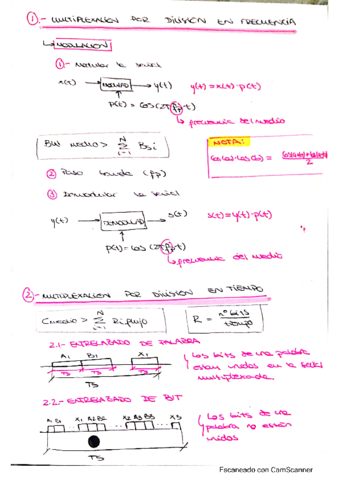 ①- MULTIPLEXACION POR DIVISIÓN EN FRECUENCIA
MODULACION
①- Modular la señal
x(t) → MODULADOR → y(t) y(t) = x(t)·p(t)
p(t) = cos(2πfp t)
frecuencia del medio
BW medio > Σ i=1 N Bsi
NOTA:
cos(a)·cos(b) = cos(a+b)+cos(a-b) / 2
② Paso banda (fp)
③ Demodular la señal
y(t) → DEMODULAD → s(t) s(t) = y(t)·p(t)
p(t) = cos(2πfp t)
frecuencia del medio
②- MULTIPLEXACION POR DIVISION EN TIEMPO
Cmedio > Σ i=1 N Ri flujo
R = nº bits / tiempo
2.1- ENTRELAZADO DE PALABRA
A1 B1 X1
TS TS TS
TS
Los bits de una palabra
estan unidos en la señal
multiplexada
2.2- ENTRELAZADO DE BIT
A1 B1 X1 A2 B2 X2 A3 B3 X3
TS
Los bits de una
palabra no están
unidos
Escaneado con CamScanner